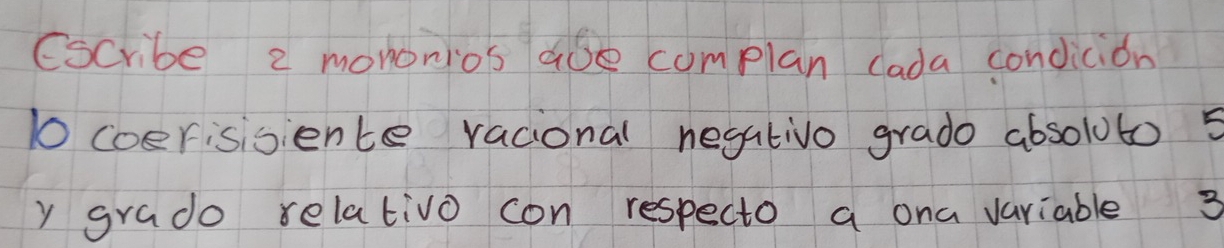 Escribe 2 monomios que cumplan cada condición
10 coefisisiente racional negativo grado absoluto 5
y grado relativo con respecto a una variable 3